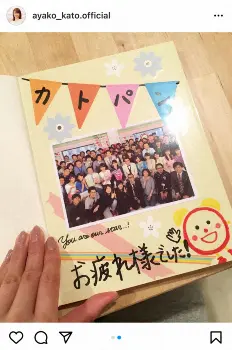 ayako_kato.official
カトパン
You are our star...!
お疲れ様でした!